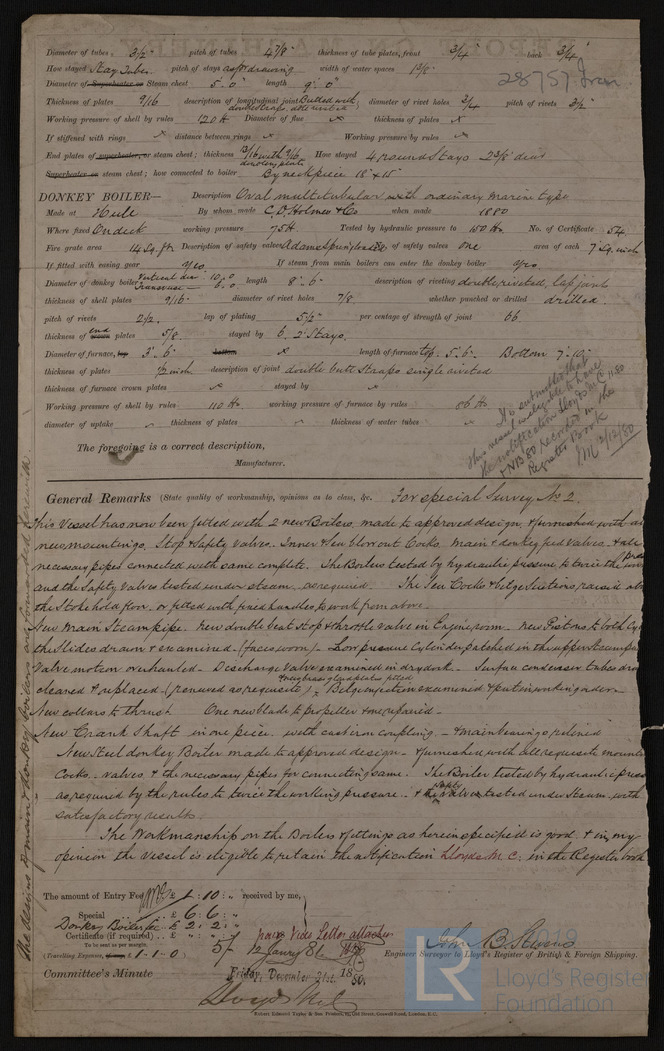 Diameter of tubes, 3 1/2" pitch of tubes 4 7/8" thickness of tube plates, front 3/4" back 3/4"
How stayed Stay Tubes pitch of stays as pr drawing width of water spaces 1 3/8"
28757 Iron
Diameter of Superheater or Steam chest 5'.0" length 9'.0"
Thickness of plates 9/16 description of longitudinal joint Butted with double straps diameter of rivet holes 3/4 pitch of rivets 3 1/2"
Working pressure of shell by rules 120 lbs Diameter of flue thickness of plates
If stiffened with rings distance between rings Working pressure by rules
End plates of superheater, or steam chest; thickness 13/16 with 9/16 doubling plate How stayed 4 round Stays 2 3/8" diar
Superheater or steam chest; how connected to boiler By neck piece 18" x 15"
DONKEY BOILER— Description Oval multitubular with ordinary marine type
Made at Hull By whom made C. D. Holmes & Co when made 1880
Where fixed On deck working pressure 75 lbs Tested by hydraulic pressure to 150 lbs No. of Certificate 54
Fire grate area 14 Sq. ft Description of safety valves Adams Spring No. of safety valves one area of each 7 Sq. inch
If fitted with easing gear Yes If steam from main boilers can enter the donkey boiler Yes
Diameter of donkey boiler Vertical diar 10.0 Transverse 6.0 length 8'.6" description of riveting double riveted, lap joint
thickness of shell plates 9/16" diameter of rivet holes 7/8 whether punched or drilled drilled.
pitch of rivets 2 1/2 lap of plating 5 1/2" per centage of strength of joint 66
thickness of end plates 5/8 stayed by 6. 2" Stays.
Diameter of furnace, top 3'.6" bottom length of furnace top 5'.6" Bottom 7'.10"
thickness of plates 1/2 inch description of joint double butt straps single riveted
thickness of furnace crown plates stayed by
Working pressure of shell by rules 110 lbs working pressure of furnace by rules 86 lbs
diameter of uptake thickness of plates thickness of water tubes
It is submitted that
this vessel is eligible to have
the notification Lloyds M C 11.80
& NB 80 recorded in the
Register Book
2/12/80
The foregoing is a correct description,
Manufacturer.
General Remarks (State quality of workmanship, opinions as to class, &c. For special Survey No 2.
This Vessel has now been fitted with 2 new Boilers, made to approved design, & furnished with
new mountings, Stop & Safety Valves. Inner & Sea blow out Cocks, main & donkey feed valves, & all
necessary pipes connected with same complete. The Boilers tested by hydraulic pressure to twice the
and the Safety Valves tested under steam, as required. The Sea Cocks & bilge Suctions raised above
the Stoke hold floor, or fitted with fixed handles to work from above.
New main Steam pipe. New double beat Stop & throttle Valve in Engine room. New Pistons to both
the Slides drawn & examined (faces worn). Low pressure Cylinder patched in the upper steam port
Valve motion overhauled. Discharge Valve examined in dry dock. Surface condenser tubes
cleaned & replaced (renewed as requisite) Bilge injection examined & put in working order.
New collars to thrust One new blade to propeller & one repaired
New Crank Shaft in one piece. with cast iron coupling. & main bearings relined
New Steel donkey Boiler made to approved design & furnished with all requisite
Cocks. Valves & the necessary pipes for connecting same. The Boiler tested by hydraulic
as required by the rules to twice the working pressure. & the Safety Valve tested under Steam. with
satisfactory results.
The Workmanship on the Boilers & fittings as herein specified is good & in my
opinion the Vessel is eligible to retain the notification Lloyds M.C. in the Register book
The amount of Entry Fee £ 1 : 10 : " received by me,
Special £ 6 : 6 : "
Donkey Boiler fee £ 2 : 2 : "
Certificate (if required) 5/
To be sent as per margin.
(Travelling Expenses, if any, £ 1-1-0)
Vide Letter attached
12 Janry 81
John B. Stevens
Engineer Surveyor to Lloyd's Register of British & Foreign Shipping.
Committee's Minute Friday, December 31st, 1880.
Lloyds M.C.
Robert Edmund Taylor & Son, Printers, 19, Old Street, Goswell Road, London, E.C.
LR
© 2019
Lloyd's Register
Foundation